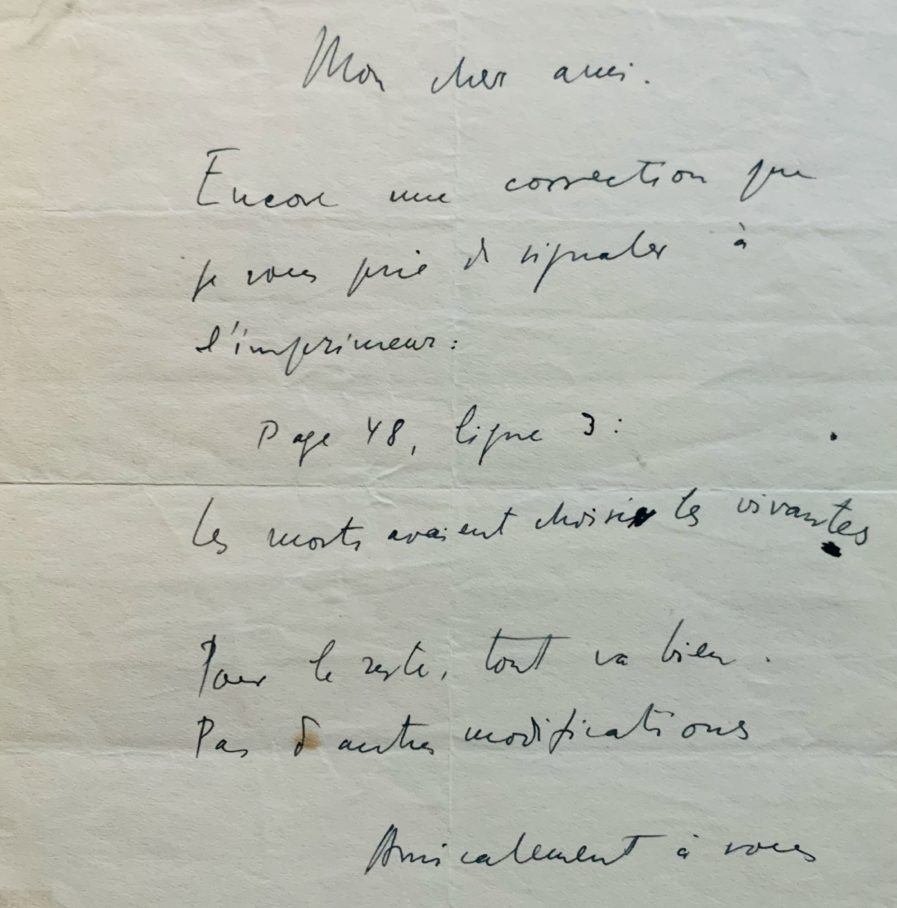 Mon cher ami.
Encore une correction que
je vous prie de signaler à
l'imprimeur:
Page 48, ligne 3:
les morts avaient choisi les vivantes
Pour le reste, tout va bien.
Pas d'autres modifications
Amicalement à vous